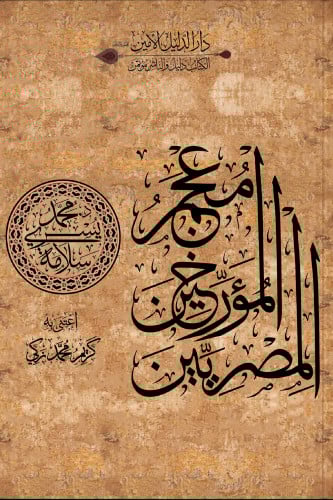 دار الدليل الأمين
الكتاب دليل والناشر مؤتمن
معجم
المؤرخين
المصريين
د. محمد
يسري
سلامة
اعتنى به
كريم محمد زكي